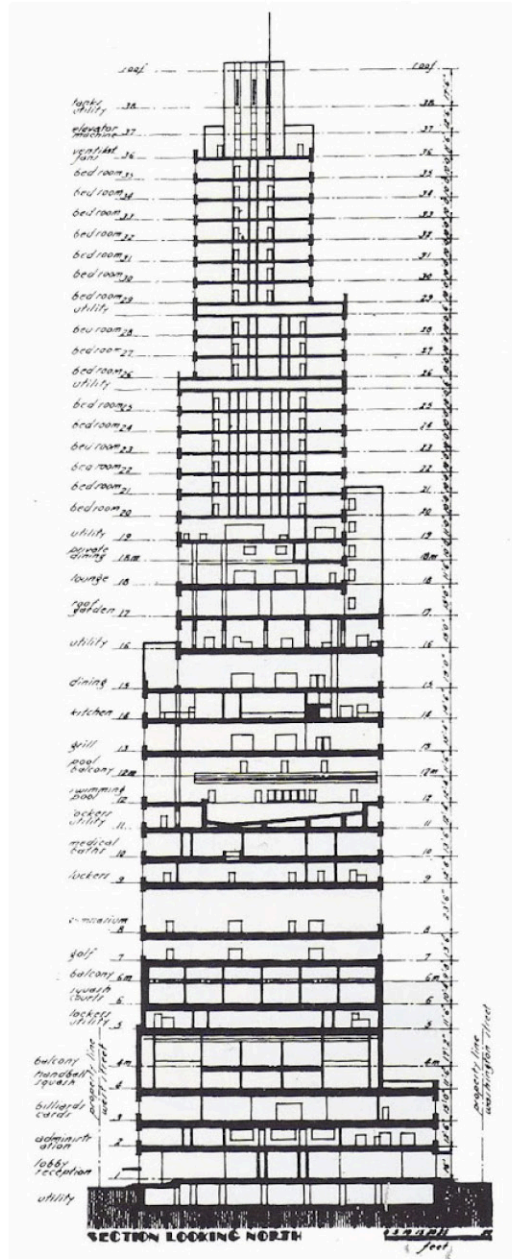 roof roof
tanks
utility 38 38
elevator
machine 37 37
ventilat
fans 36 36
bedroom 35 35
bedroom 34 34
bedroom 33 33
bedroom 32 32
bedroom 31 31
bedroom 30 30
bedroom 29 29
utility
bedroom 28 28
bedroom 27 27
bedroom 26 26
utility
bedroom 25 25
bedroom 24 24
bedroom 23 23
bedroom 22 22
bedroom 21 21
bedroom 20 20
utility 19 19
private
dining 18m 18m
lounge 18 18
roof
garden 17 17
utility 16 16
dining 15 15
kitchen 14 14
grill 13 13
pool
balcony 12m 12m
swimming
pool 12 12
lockers
utility 11 11
medical
baths 10 10
lockers 9 9
8 8
golf 7 7
balcony 6m 6m
squash
courts 6 6
lockers
utility 5 5
balcony 4m 4m
handball
squash 4 4
billiards
cards 3 3
administr
ation 2 2
lobby
reception 1 1
utility
property line
west street
property line
washington street
SECTION LOOKING NORTH
feet